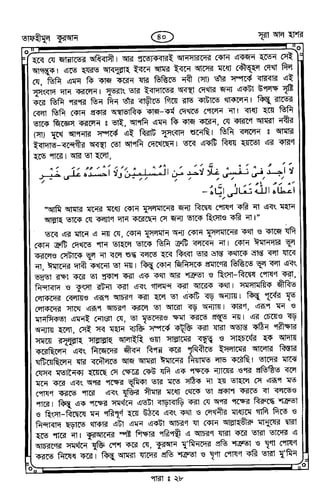 তাফহীমুল কুরআন
৪০
সূরা আল হাশর
হবে যে জান্নাতের অধিবাসী। আর প্রত্যেকবারই আনসারদের কোন একজন হতেন সেই
আগন্তুক। এতে হযরত আবদুল্লাহ ইবনে আমর ইবনে আসের মধ্যে কৌতুহল দেখা দিল
যে, তিনি এমন কি কাজ করেন যার ভিত্তিতে নবী (সা) তাঁর সম্পর্কে বারবার এই
সুসংবাদ দান করলেন। সুতরাং তার ইবাদাতের অবস্থা দেখার জন্য একটা উপলক্ষ সৃষ্টি
করে তিনি পরপর তিন দিন তাঁর বাড়ীতে গিয়ে রাত কাটাতে থাকলেন। কিন্তু রাতের
বেলা তিনি কোন প্রকার অস্বাভাবিক কাজ-কর্ম দেখতে পেলেন না। বাধ্য হয়ে তিনি
তাকে জিজ্ঞেস করলেন ঃ ভাই, আপনি এমন কি কাজ করেন, যে কারণে আমরা নবীর
(সা) মুখে আপনার সম্পর্কে এই বিরাট সুসংবাদ শুনেছি। তিনি বললেন ঃ আমার
ইবাদাত-বন্দেগীর অবস্থা তো আপনি দেখেছেন। তবে একটি বিষয় হয়তো এর কারণ
হতে পারে। আর তা হলো,
لَا أَجِدُ فِي نَفْسِي غِلًّا لِأَحَدٍ مِنَ الْمُسْلِمِينَ وَلَا أَحْسُدُهُ عَلَى خَيْرٍ
أَعْطَاهُ اللَّهُ تَعَالَى إِيَّاهُ -
"আমি আমার মনের মধ্যে কোন মুসলমানের জন্য বিদ্বেষ পোষণ করি না এবং মহান
আল্লাহ তাকে যে কল্যাণ দান করেছেন সে জন্য তাকে হিংসাও করি না।"
তবে এর মানে এ নয় যে, কোন মুসলমান অন্য কোন মুসলমানের কথা ও কাজে যদি
কোন ত্রুটি দেখতে পান তাহলে তাকে তিনি ত্রুটি বলবেন না। কোন ঈমানদার ভুল
করলেও সেটাকে ভুল না বলে শুদ্ধ বলতে হবে কিংবা তার ভ্রান্ত কথাকে ভ্রান্ত বলা যাবে
না, ঈমানের দাবী কখনো তা নয়। কিন্তু কোন জিনিসকে প্রমাণের ভিত্তিতে ভুল বলা এবং
ভদ্রতা রক্ষা করে তা প্রকাশ করা এক কথা আর শত্রুতা ও হিংসা-বিদ্বেষ পোষণ করা,
নিন্দাবাদ ও কুৎসা রটনা করা এবং গালমন্দ করা আরেক কথা। সমসাময়িক জীবিত
লোকদের বেলায়ও এরূপ আচরণ করা হলে তা একটি বড় অন্যায়। কিন্তু পূর্বের মৃত
লোকদের সাথে এরূপ আচরণ করলে তা আরো বড় অন্যায়। কারণ, এরূপ মন ও
মানসিকতা এমনই নোংরা যে, তা মৃতদেরও ক্ষমা করতে প্রস্তুত নয়। এর চেয়েও বড়
অন্যায় হলো, সেই সব মহান ব্যক্তি সম্পর্কে কটূক্তি করা যারা অত্যন্ত কঠিন পরীক্ষার
সময়ে রসূলুল্লাহ সাল্লাল্লাহু আলাইহি ওয়া সাল্লামের বন্ধুত্ব ও সাহচর্যের হক আদায়
করেছিলেন এবং নিজেদের জীবন বিপন্ন করে পৃথিবীতে ইসলামের আলোর বিস্তার
ঘটিয়েছিলেন যার বদৌলতে আজ আমরা ঈমানের নিয়ামত লাভ করেছি। তাদের মাঝে
যেসব মতানৈক্য হয়েছে সে ক্ষেত্রে কেউ যদি এক পক্ষকে ন্যায়ের ওপর প্রতিষ্ঠিত বলে
মনে করে এবং অপর পক্ষের ভূমিকা তার মতে সঠিক না হয় তাহলে সে এরূপ মত
পোষণ করতে পারে এবং যুক্তির সীমার মধ্যে থেকে তা প্রকাশ করতে বা বলতেও
পারে। কিন্তু এক পক্ষের সমর্থনে এতটা বাড়াবাড়ি করা যে অপর পক্ষের বিরুদ্ধে শত্রুতা
ও হিংসা-বিদ্বেষে মন পরিপূর্ণ হয়ে উঠবে এবং কথা ও লেখনীর মাধ্যমে গালি দিতে ও
নিন্দাবাদ ছড়াতে থাকবে এটা এমন একটা আচরণ যা কোন আল্লাহভীরু মানুষের দ্বারা
হতে পারে না। কুরআনের স্পষ্ট শিক্ষার পরিপন্থী এ আচরণ যারা করে তারা তাদের এ
আচরণের সমর্থনে যুক্তি পেশ করে যে, কুরআন মু'মিনদের প্রতি শত্রুতা ও ঘৃণা পোষণ
করতে নিষেধ করে। কিন্তু আমরা যাদের প্রতি শত্রুতা ও ঘৃণা পোষণ করি তারা মু'মিন
পারা ঃ ২৮